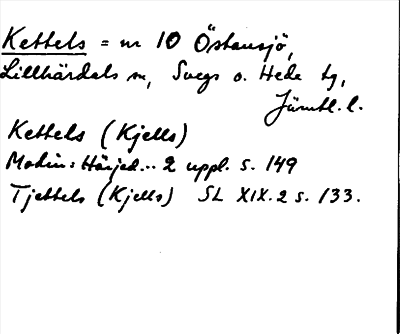 Kettels = nr 10 Östansjö,
Lillhärdals sn, Svegs o. Hede tg,
Jämtl. l.
Kettels (Kjells)
Modin: Härjed... 2 uppl. s. 149
Tjettels (Kjells) SL XIX. 2 s. 133.